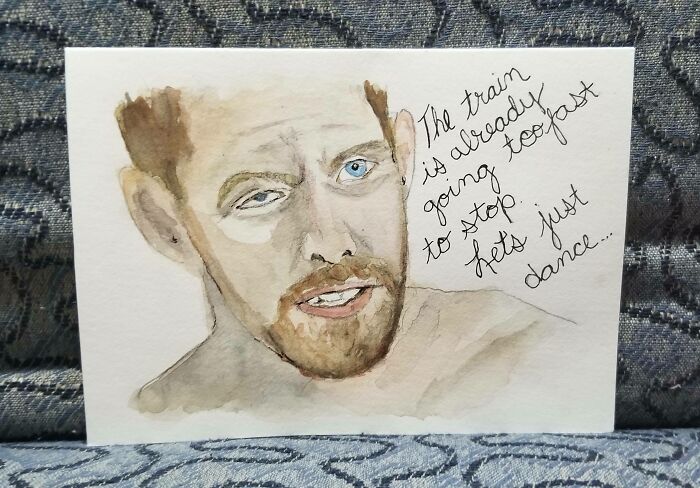 The train
is already
going too fast
to stop.
Lets just
dance...